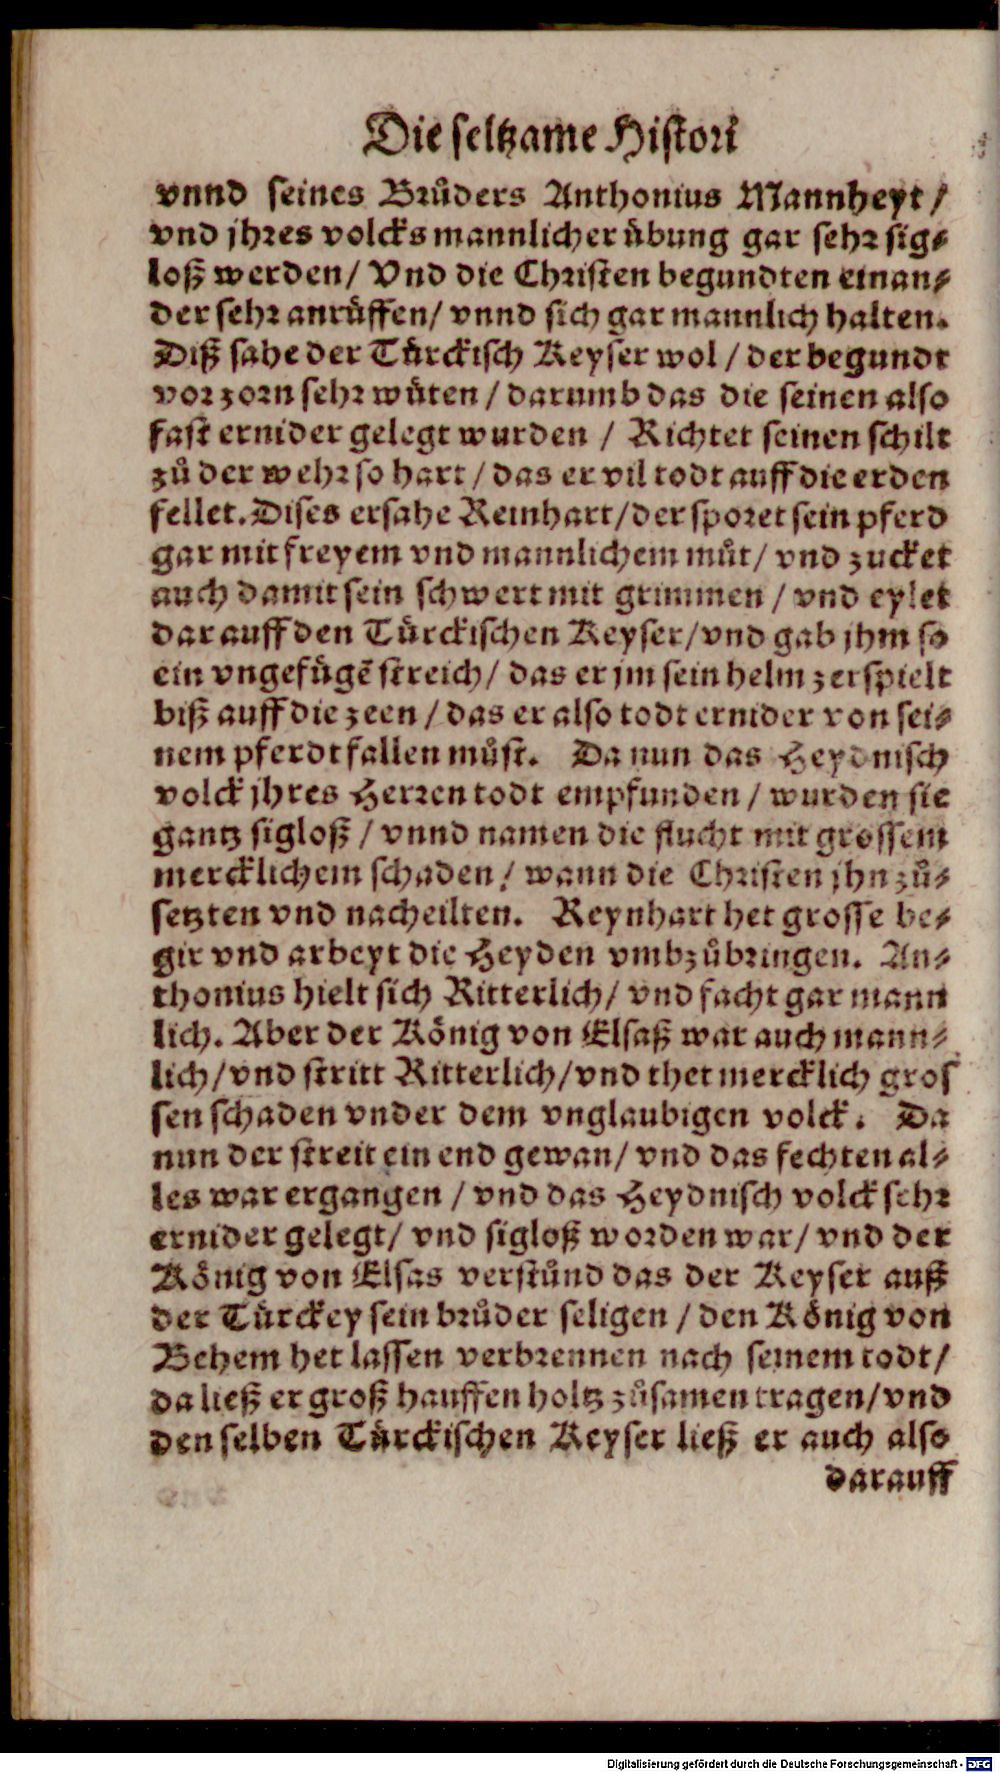 Die seltzame Histori
vnnd seines Brůders Anthonius Mannheyt /
vnd jhres volcks mannlicher übung gar sehr sig-
loß werden / Vnd die Christen begundten einan-
der sehr anrüffen / vnnd sich gar mannlich halten.
Diß sahe der Türckisch Keyser wol / der begundt
vor zorn sehr wüten / darumb das die seinen also
fast ernider gelegt wurden / Richtet seinen schilt
zů der wehr so hart / das er vil todt auff die erden
fellet. Dises ersahe Reinhart / der sporet sein pferd
gar mit freyem vnd mannlichem můt / vnd zucket
auch damit sein schwert mit grimmen / vnd eylet
darauff den Türckischen Keyser / vnd gab jhm so
ein vngefügẽ streich / das er jm sein helm zerspielt
biß auff die zeen / das er also todt ernider von sei-
nem pferdt fallen můst. Da nun das Heydnisch
volck jhres Herren todt empfunden / wurden sie
gantz sigloß / vnnd namen die flucht mit grossem
mercklichem schaden / wann die Christen jhn zů-
setzten vnd nacheilten. Reynhart het grosse be-
gir vnd arbeyt die Heyden vmbzůbringen. An-
thonius hielt sich Ritterlich / vnd facht gar mann
lich. Aber der König von Elsaß war auch mann-
lich / vnd stritt Ritterlich / vnd thet mercklich gros
sen schaden vnder dem vnglaubigen volck. Da
nun der streit ein end gewan / vnd das fechten al-
les war ergangen / vnd das Heydnisch volck sehr
ernider gelegt / vnd sigloß worden war / vnd der
König von Elsas verstůnd das der Keyser auß
der Türckey sein brůder seligen / den König von
Behem het lassen verbrennen nach seinem todt /
da ließ er groß hauffen holtz zůsamen tragen / vnd
den selben Türckischen Keyser ließ er auch also
darauff
Digitalisierung gefördert durch die Deutsche Forschungsgemeinschaft - DFG